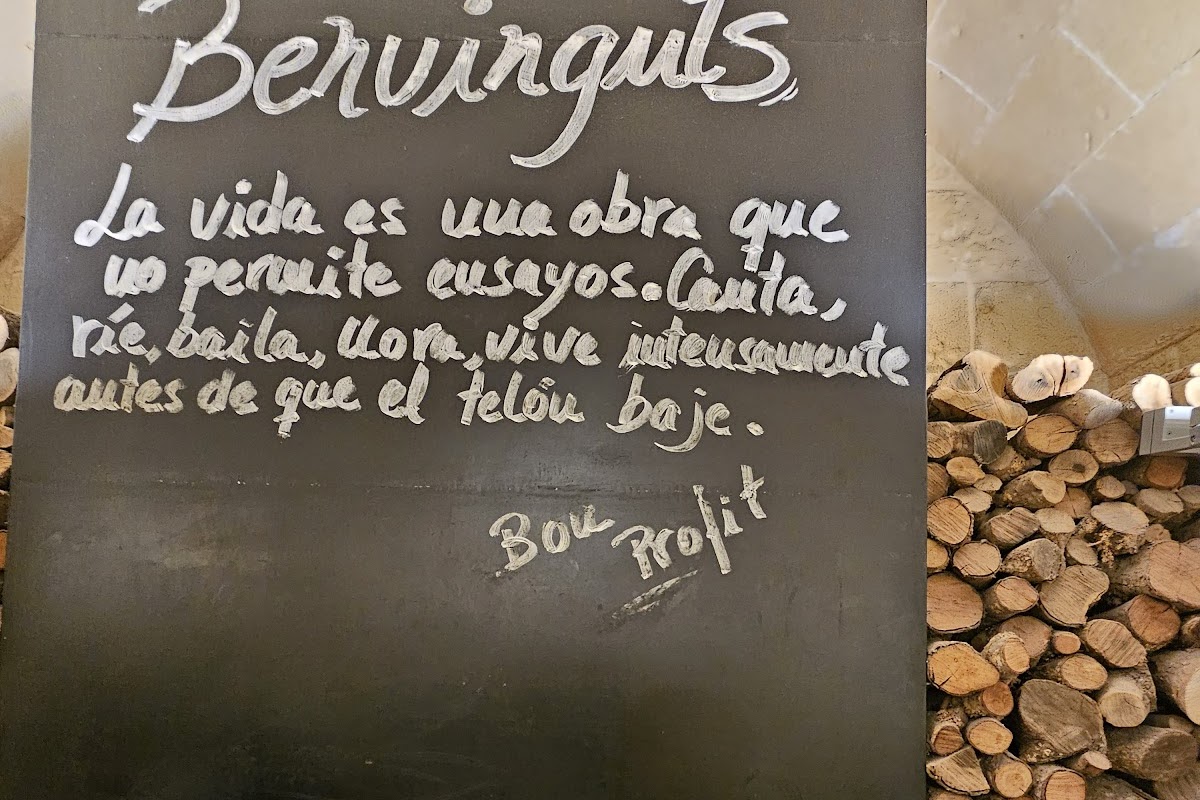 Benvinguts
La vida es una obra que
no permite ensayos. Canta,
ríe, baila, llora, vive intensamente
antes de que el telón baje.
Bon Profit